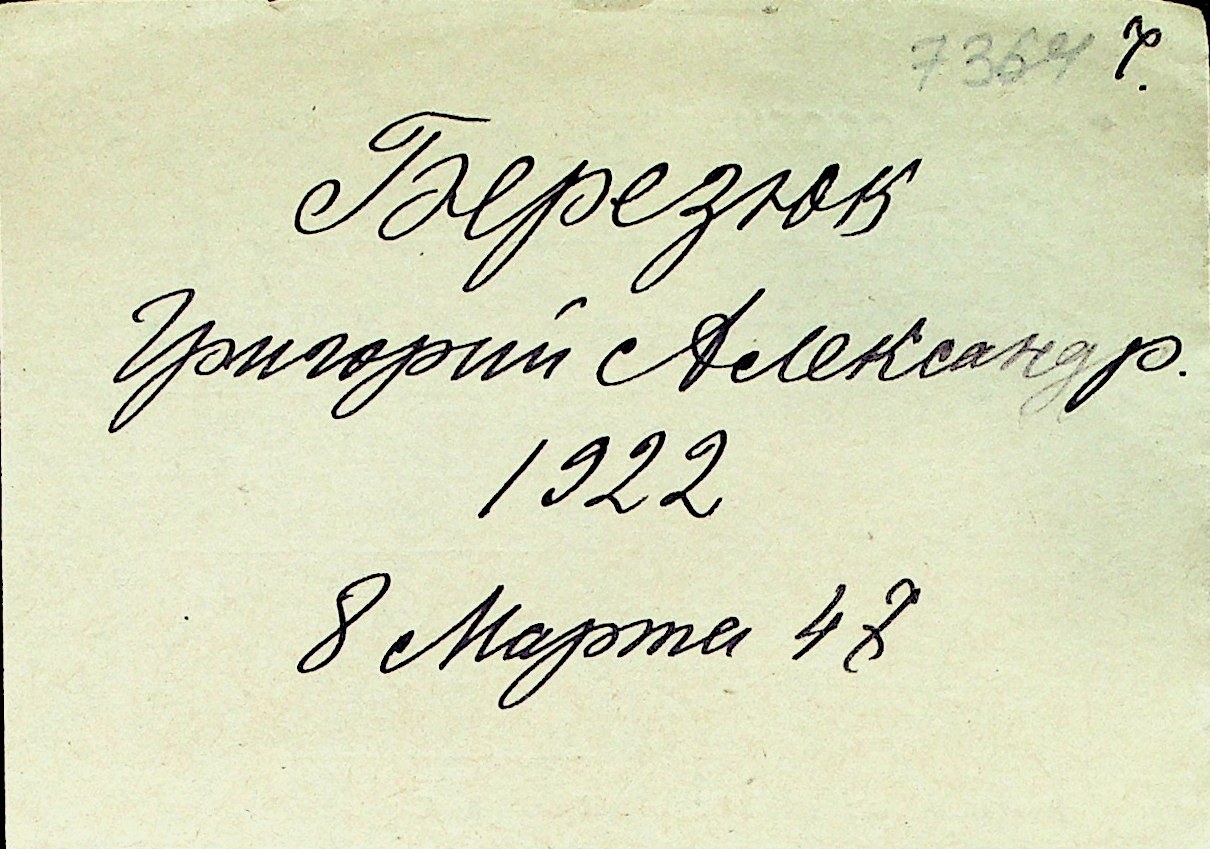 Березюк
Григорий Александр.
1922
8 Марта 47